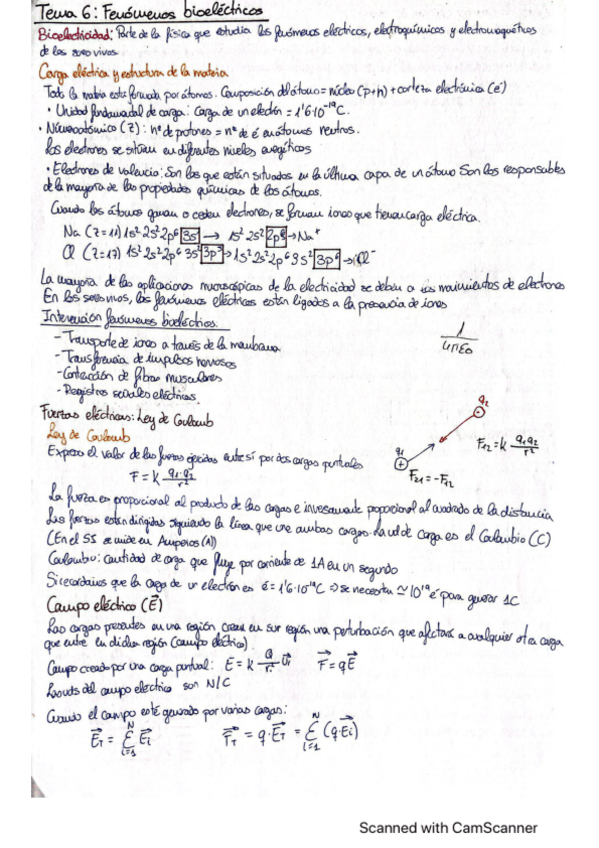 Tema 6: Fenómenos bioeléctricos
Bioelectricidad: Parte de la física que estudia los fenómenos eléctricos, electroquímicos y electromagnéticos
de los seres vivos.
Carga eléctrica y estructura de la materia
Toda la materia esta formada por átomos. Composición del átomo = núcleo (p+n) + corteza electrónica (e⁻)
· Unidad fundamental de carga: Carga de un electrón = 1'6·10⁻¹⁹C.
· Número atómico (Z): nº de protones = nº de é en átomos neutros.
Los electrones se sitúan en diferentes niveles energéticos
· Electrones de valencia: Son los que están situados en la última capa de un átomo Son los responsables
de la mayoría de las propiedades químicas de los átomos.
Cuando los átomos ganan o ceden electrones, se forman iones que tienen carga eléctrica.
Na (Z=11) 1s² 2s² 2p⁶ 3s¹ → 1s² 2s² 2p⁶ → Na⁺
Cl (Z=17) 1s² 2s² 2p⁶ 3s² 3p⁵ → 1s² 2s² 2p⁶ 3s² 3p⁶ → Cl⁻
La mayoría de las aplicaciones macroscópicas de la electricidad se deben a los movimientos de electrones
En los seres vivos, los fenómenos eléctricos están ligados a la presencia de iones
Intervención fenómenos bioeléctricos:
- Transporte de iones a través de la membrana
- Transferencia de impulsos nerviosos
- Contracción de fibras musculares
- Registros señales eléctricas.
1/4πε₀
Fuerzas eléctricas: Ley de Coulomb
Ley de Coulomb
Expresa el valor de las fuerzas ejercidas entre sí por dos cargas puntuales
F = k q₁·q₂/r²
q₂
q₁
F₁₂ = k q₁q₂/r²
F₂₁ = -F₁₂
La fuerza es proporcional al producto de las cargas e inversamente proporcional al cuadrado de la distancia
Las fuerzas están dirigidas siguiendo la línea que une ambas cargas. La ud de carga es el Coulombio (C)
(En el SI se mide en Amperios (A))
Coulombio: cantidad de carga que fluye por corriente de 1A en un segundo
Si recordamos que la carga de un electrón es é = 1'6·10⁻¹⁹C ⇒ se necesita ≃ 10¹⁹ é para generar 1C
Campo eléctrico (E⃗)
Las cargas presentes en una región crean en su región una perturbación que afectará a cualquier otra carga
que entre en dicha región (campo eléctrico)
Campo creado por una carga puntual: E = k Q/r² u⃗r F⃗ = qE⃗
La uds del campo eléctrico son N/C
Cuando el campo esté generado por varias cargas:
E⃗T = Σᴺᵢ₌₁ E⃗i F⃗T = q·E⃗T = Σᴺᵢ₌₁ (q·E⃗i)
Scanned with CamScanner